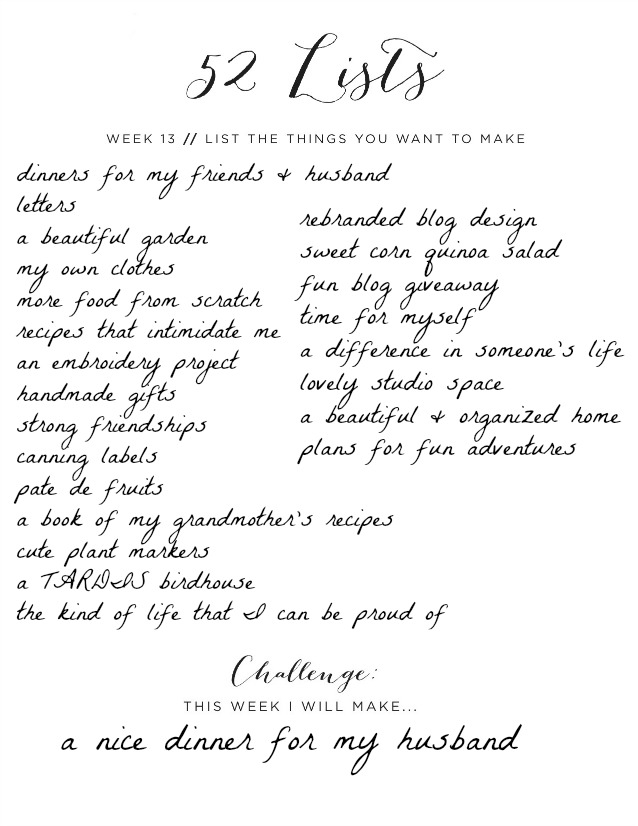 52 Lists
WEEK 13 // LIST THE THINGS YOU WANT TO MAKE
dinners for my friends & husband
letters
a beautiful garden
my own clothes
more food from scratch
recipes that intimidate me
an embroidery project
handmade gifts
strong friendships
canning labels
pate de fruits
a book of my grandmother's recipes
cute plant markers
a TARDIS birdhouse
the kind of life that I can be proud of
rebranded blog design
sweet corn quinoa salad
fun blog giveaway
time for myself
a difference in someone's life
lovely studio space
a beautiful & organized home
plans for fun adventures
Challenge:
THIS WEEK I WILL MAKE...
a nice dinner for my husband